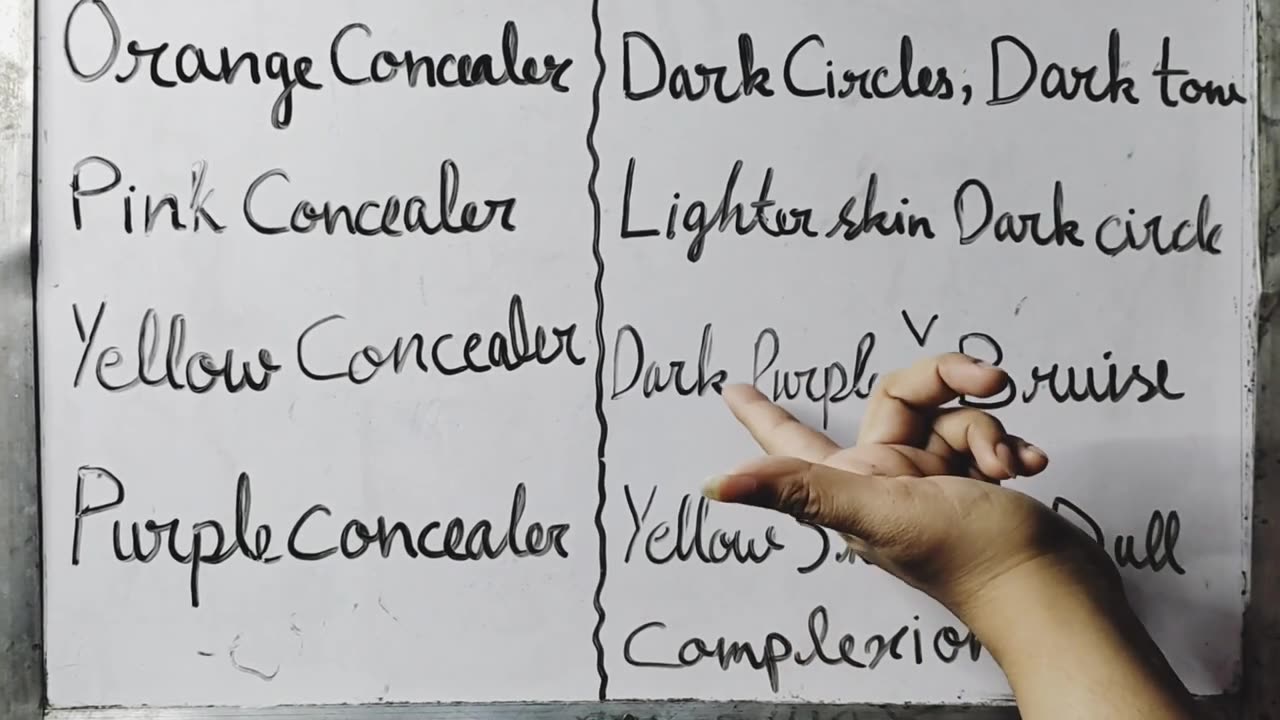 Orange Concealer Dark Circles, Dark tone
Pink Concealer Lighter skin Dark circle
Yellow Concealer Dark Purple Bruise
Purple Concealer Yellow Dull
Complexion